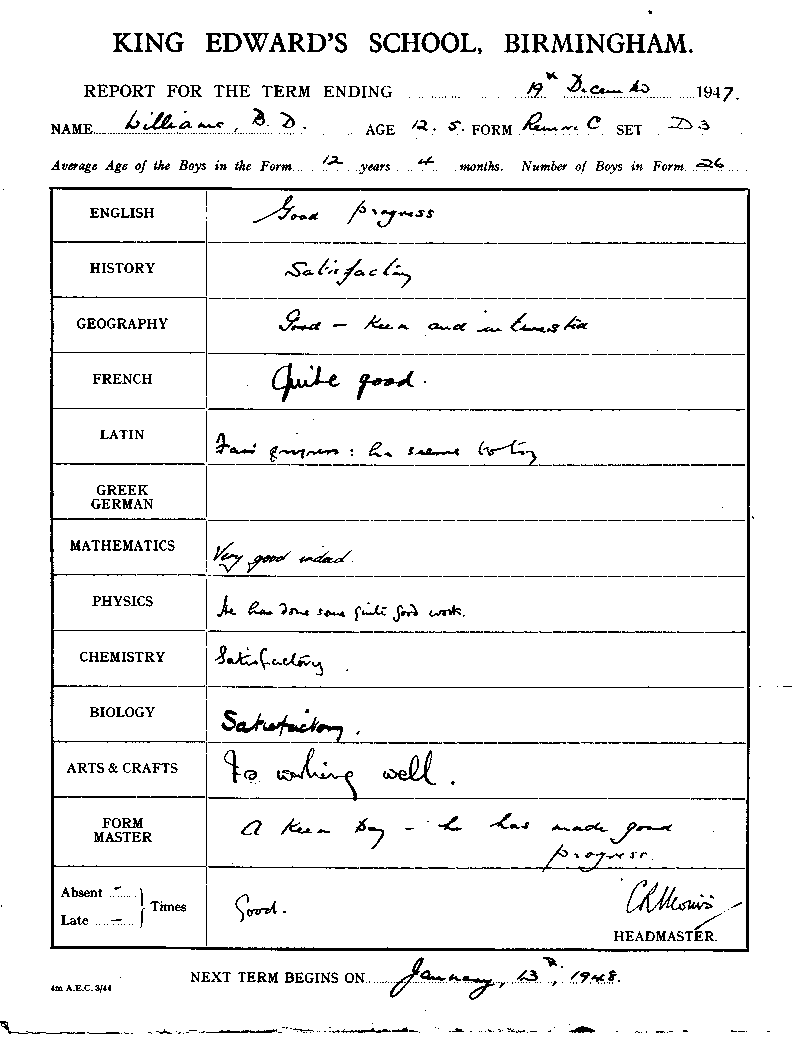 KING EDWARD'S SCHOOL, BIRMINGHAM.
REPORT FOR THE TERM ENDING 19th December 1947.
NAME Williams, B. D. AGE 12. 5. FORM Remove C SET D3
Average Age of the Boys in the Form 12 years 4 months. Number of Boys in Form 26
ENGLISH Good progress
HISTORY Satisfactory
GEOGRAPHY Good – Keen and interested
FRENCH Quite good.
LATIN Fair progress : he seems to try
GREEK
GERMAN
MATHEMATICS Very good indeed.
PHYSICS He has done some quite good work.
CHEMISTRY Satisfactory.
BIOLOGY Satisfactory.
ARTS & CRAFTS Is working well.
FORM
MASTER A Keen boy – he has made good
progress.
Absent – Times
Late –
Good.
HEADMASTER.
NEXT TERM BEGINS ON January, 13th, 1948.
4m A.E.C. 3/44